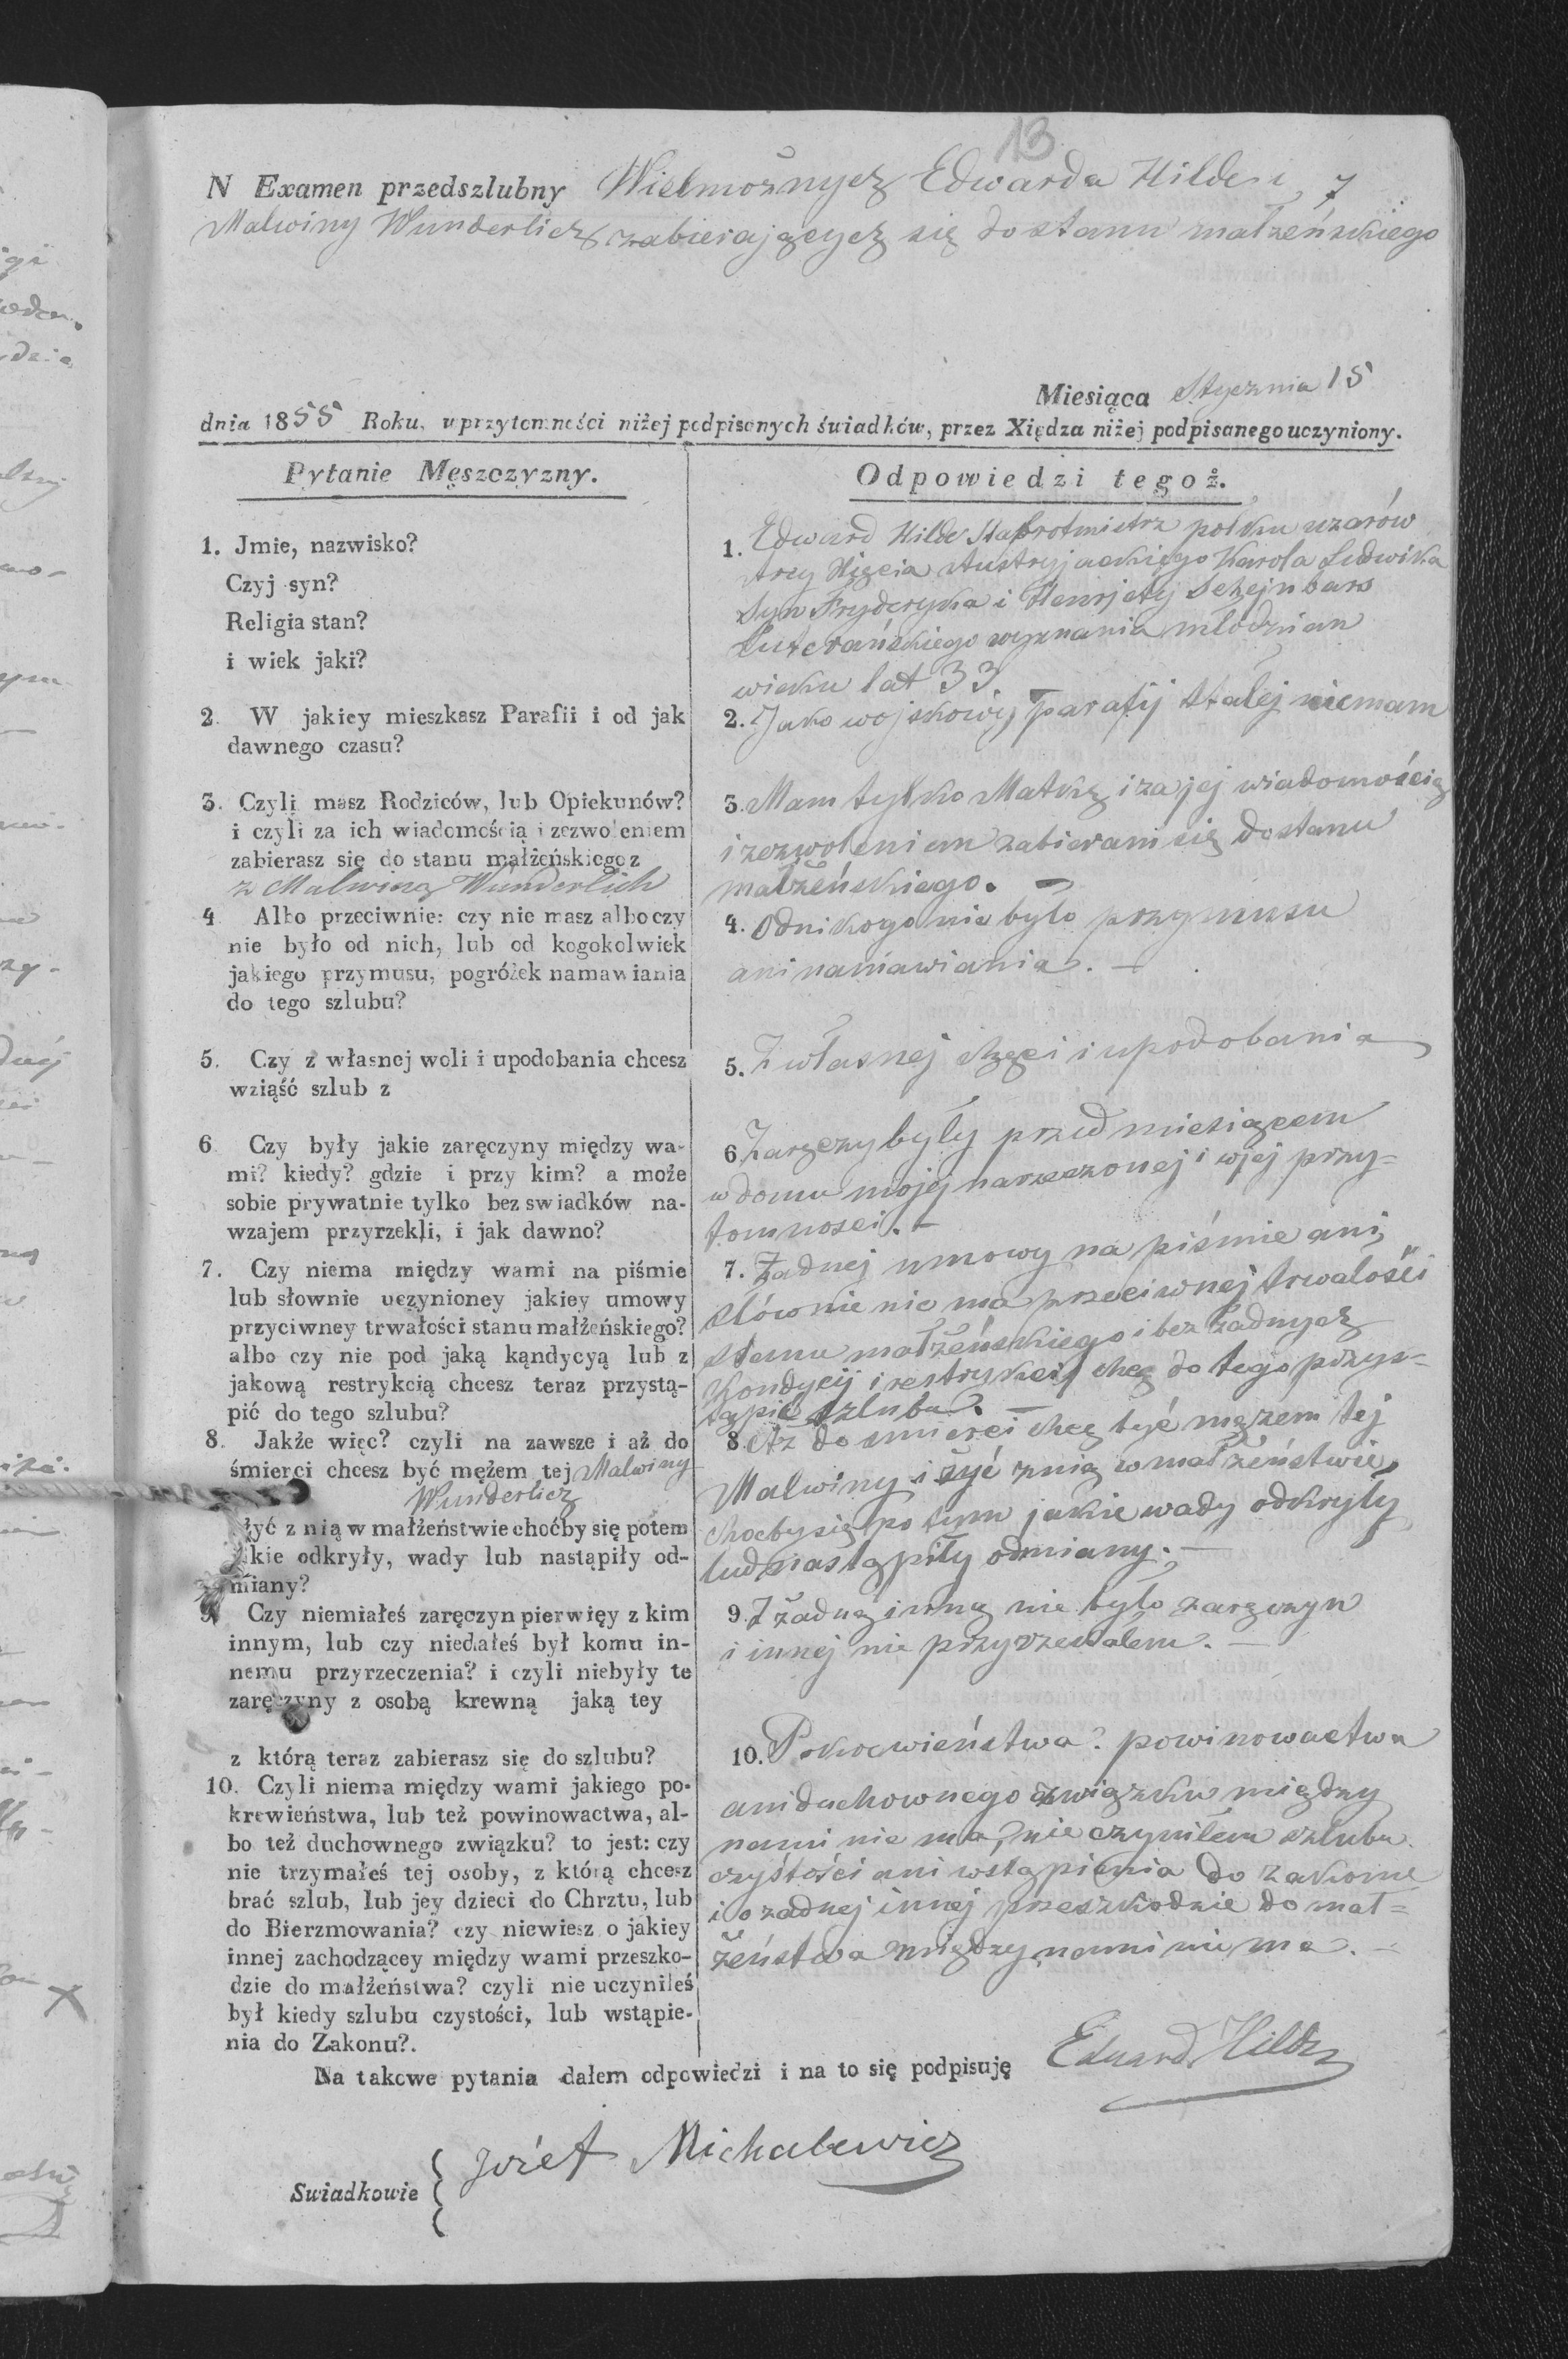 13
N Examen przedszlubny Wielmożnych Edwarda Hilde i
Malwiny Wunderlich zabierających się do stanu małżeńskiego
Miesiąca Stycznia 15
dnia 1855 Roku, w przytomności niżej podpisanych świadków, przez Xiędza niżej podpisanego uczyniony.
Pytanie Męszczyzny.
1. Jmie, nazwisko?
Czyj syn?
Religia stan?
i wiek jaki?
2. W jakiey mieszkasz Parafii i od jak
dawnego czasu?
3. Czyli masz Rodziców, lub Opiekunów?
i czyli za ich wiadomością i zezwoleniem
zabierasz się do stanu małżeńskiego z
z Malwiną Wunderlich
4 Albo przeciwnie: czy nie masz albo czy
nie było od nich, lub od kogokolwiek
jakiego przymusu, pogróżek namawiania
do tego szlubu?
5. Czy z własnej woli i upodobania chcesz
wziąść szlub z
6 Czy były jakie zaręczyny między wa-
mi? kiedy? gdzie i przy kim? a może
sobie prywatnie tylko bez swiadków na-
wzajem przyrzekli, i jak dawno?
7. Czy niema między wami na piśmie
lub słownie uczynioney jakiey umowy
przyciwney trwałości stanu małżeńskiego?
albo czy nie pod jaką kąndycyą lub z
jakową restrykcią chcesz teraz przystą-
pić do tego szlubu?
8. Jakże więc? czyli na zawsze i aż do
śmierci chcesz być mężem tej Malwiny
Wunderlich
żyć z nią w małżeństwie choćby się potem
kie odkryły, wady lub nastąpiły od-
miany?
9. Czy niemiałeś zaręczyn pierwięy z kim
innym, lub czy niedałeś był komu in-
nemu przyrzeczenia? i czyli niebyły te
zaręczyny z osobą krewną jaką tey
z którą teraz zabierasz się do szlubu?
10. Czyli niema między wami jakiego po-
krewieństwa, lub też powinowactwa, al-
bo też duchownego związku? to jest: czy
nie trzymałeś tej osoby, z którą chcesz
brać szlub, lub jey dzieci do Chrztu, lub
do Bierzmowania? czy niewiesz o jakiey
innej zachodzącey między wami przeszko-
dzie do małżeństwa? czyli nie uczyniłeś
był kiedy szlubu czystości, lub wstąpie-
nia do Zakonu?.
Odpowiedzi tegoż.
1. Edward Hilde Stabrotmistrz połku uzarów
Arcy Xięcia Austryjackiego Karola Ludwika
Syn Fryderyka i Henrjety
Luterańskiego wyznania młodzian
wieku lat 33
2. Jako wojskowy, parafij stałej niemam
3. Mam tylko Matkę i za jej wiadomością
i zezwoleniem zabieram się do stanu
małżeńskiego. —
4. Od nikogo nie było przymusu
ani namawiania. —
5. Z własnej chęci i upodobania
6 Zaręczyny były przed miesiącem
w domu mojej narzeczonej i w jej przy=
tomnosci. —
7. Żadnej umowy na piśmie ani
słownie nie ma przeciwnej trwałości
stanu małżeńskiego i bez żadnych
kondycij i restrykcij chcę do tego przys=
tąpić szlubu. —
8. Aż do smierci chcę być mężem tej
Malwiny i żyć z nią w małżeństwie,
chocby się po tym jakie wady odkryły
lub nastąpiły odmiany. —
9. Z żadną inną nie było zaręczyn
i innej nie przyrzekałem. —
10. Pokrewieństwa powinowactwa
ani duchownego związku między
nami nie ma, nie czyniłem szlubu
czystości ani wstąpienia do zakonu
i o żadnej innej przeszkodzie do mał=
żeństwa między nami nie ma. —
Na takowe pytania dałem odpowiedzi i na to się podpisuję Eduard Hilde
Swiadkowie Józef Michalewicz